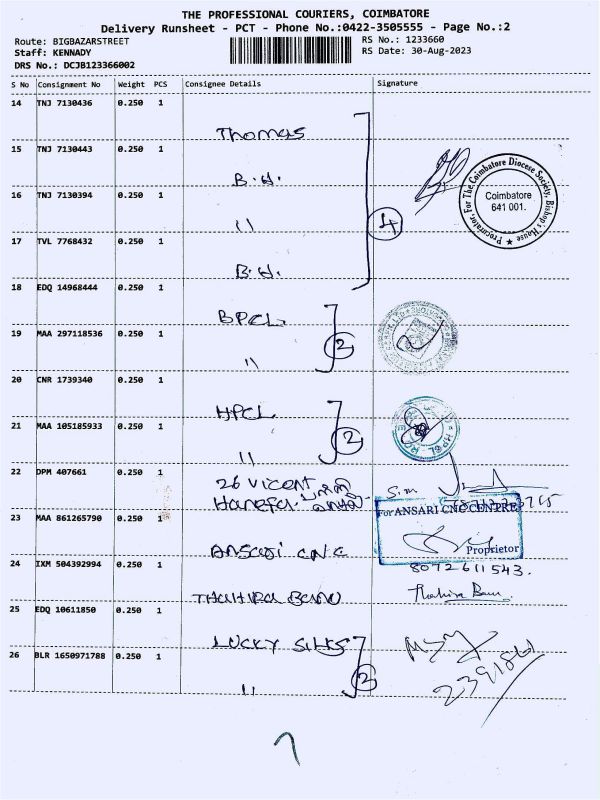 THE PROFESSIONAL COURIERS, COIMBATORE
Delivery Runsheet - PCT - Phone No.:0422-3505555 - Page No.:2
Route: BIGBAZARSTREET
RS No.: 1233660
Staff: KENNADY
RS Date: 30-Aug-2023
DRS No.: DCJB123366002
S No Consignment No Weight PCS Consignee Details Signature
14 TNJ 7130436 0.250 1
Thomas
15 TNJ 7130443 0.250 1
B.H.
16 TNJ 7130394 0.250 1
"
17 TVL 7768432 0.250 1
B.H.
4
Procurator, For The Coimbatore Diocese Society, Bishop's House
Coimbatore
641 001.
18 EDQ 14968444 0.250 1
BPCL
19 MAA 297118536 0.250 1
"
2
20 CNR 1739340 0.250 1
HPCL
21 MAA 105185933 0.250 1
"
2
22 DPM 407661 0.250 1
26 Vicent
Hanefa
23 MAA 861265790 0.250 1
Ansari CNC
For ANSARI CNC CENTRE
Proprietor
24 IXM 504392994 0.250 1
8072611543.
Thahira Banu
25 EDQ 10611850 0.250 1
LUCKY SILKS
26 BLR 1650971788 0.250 1
"
2
7